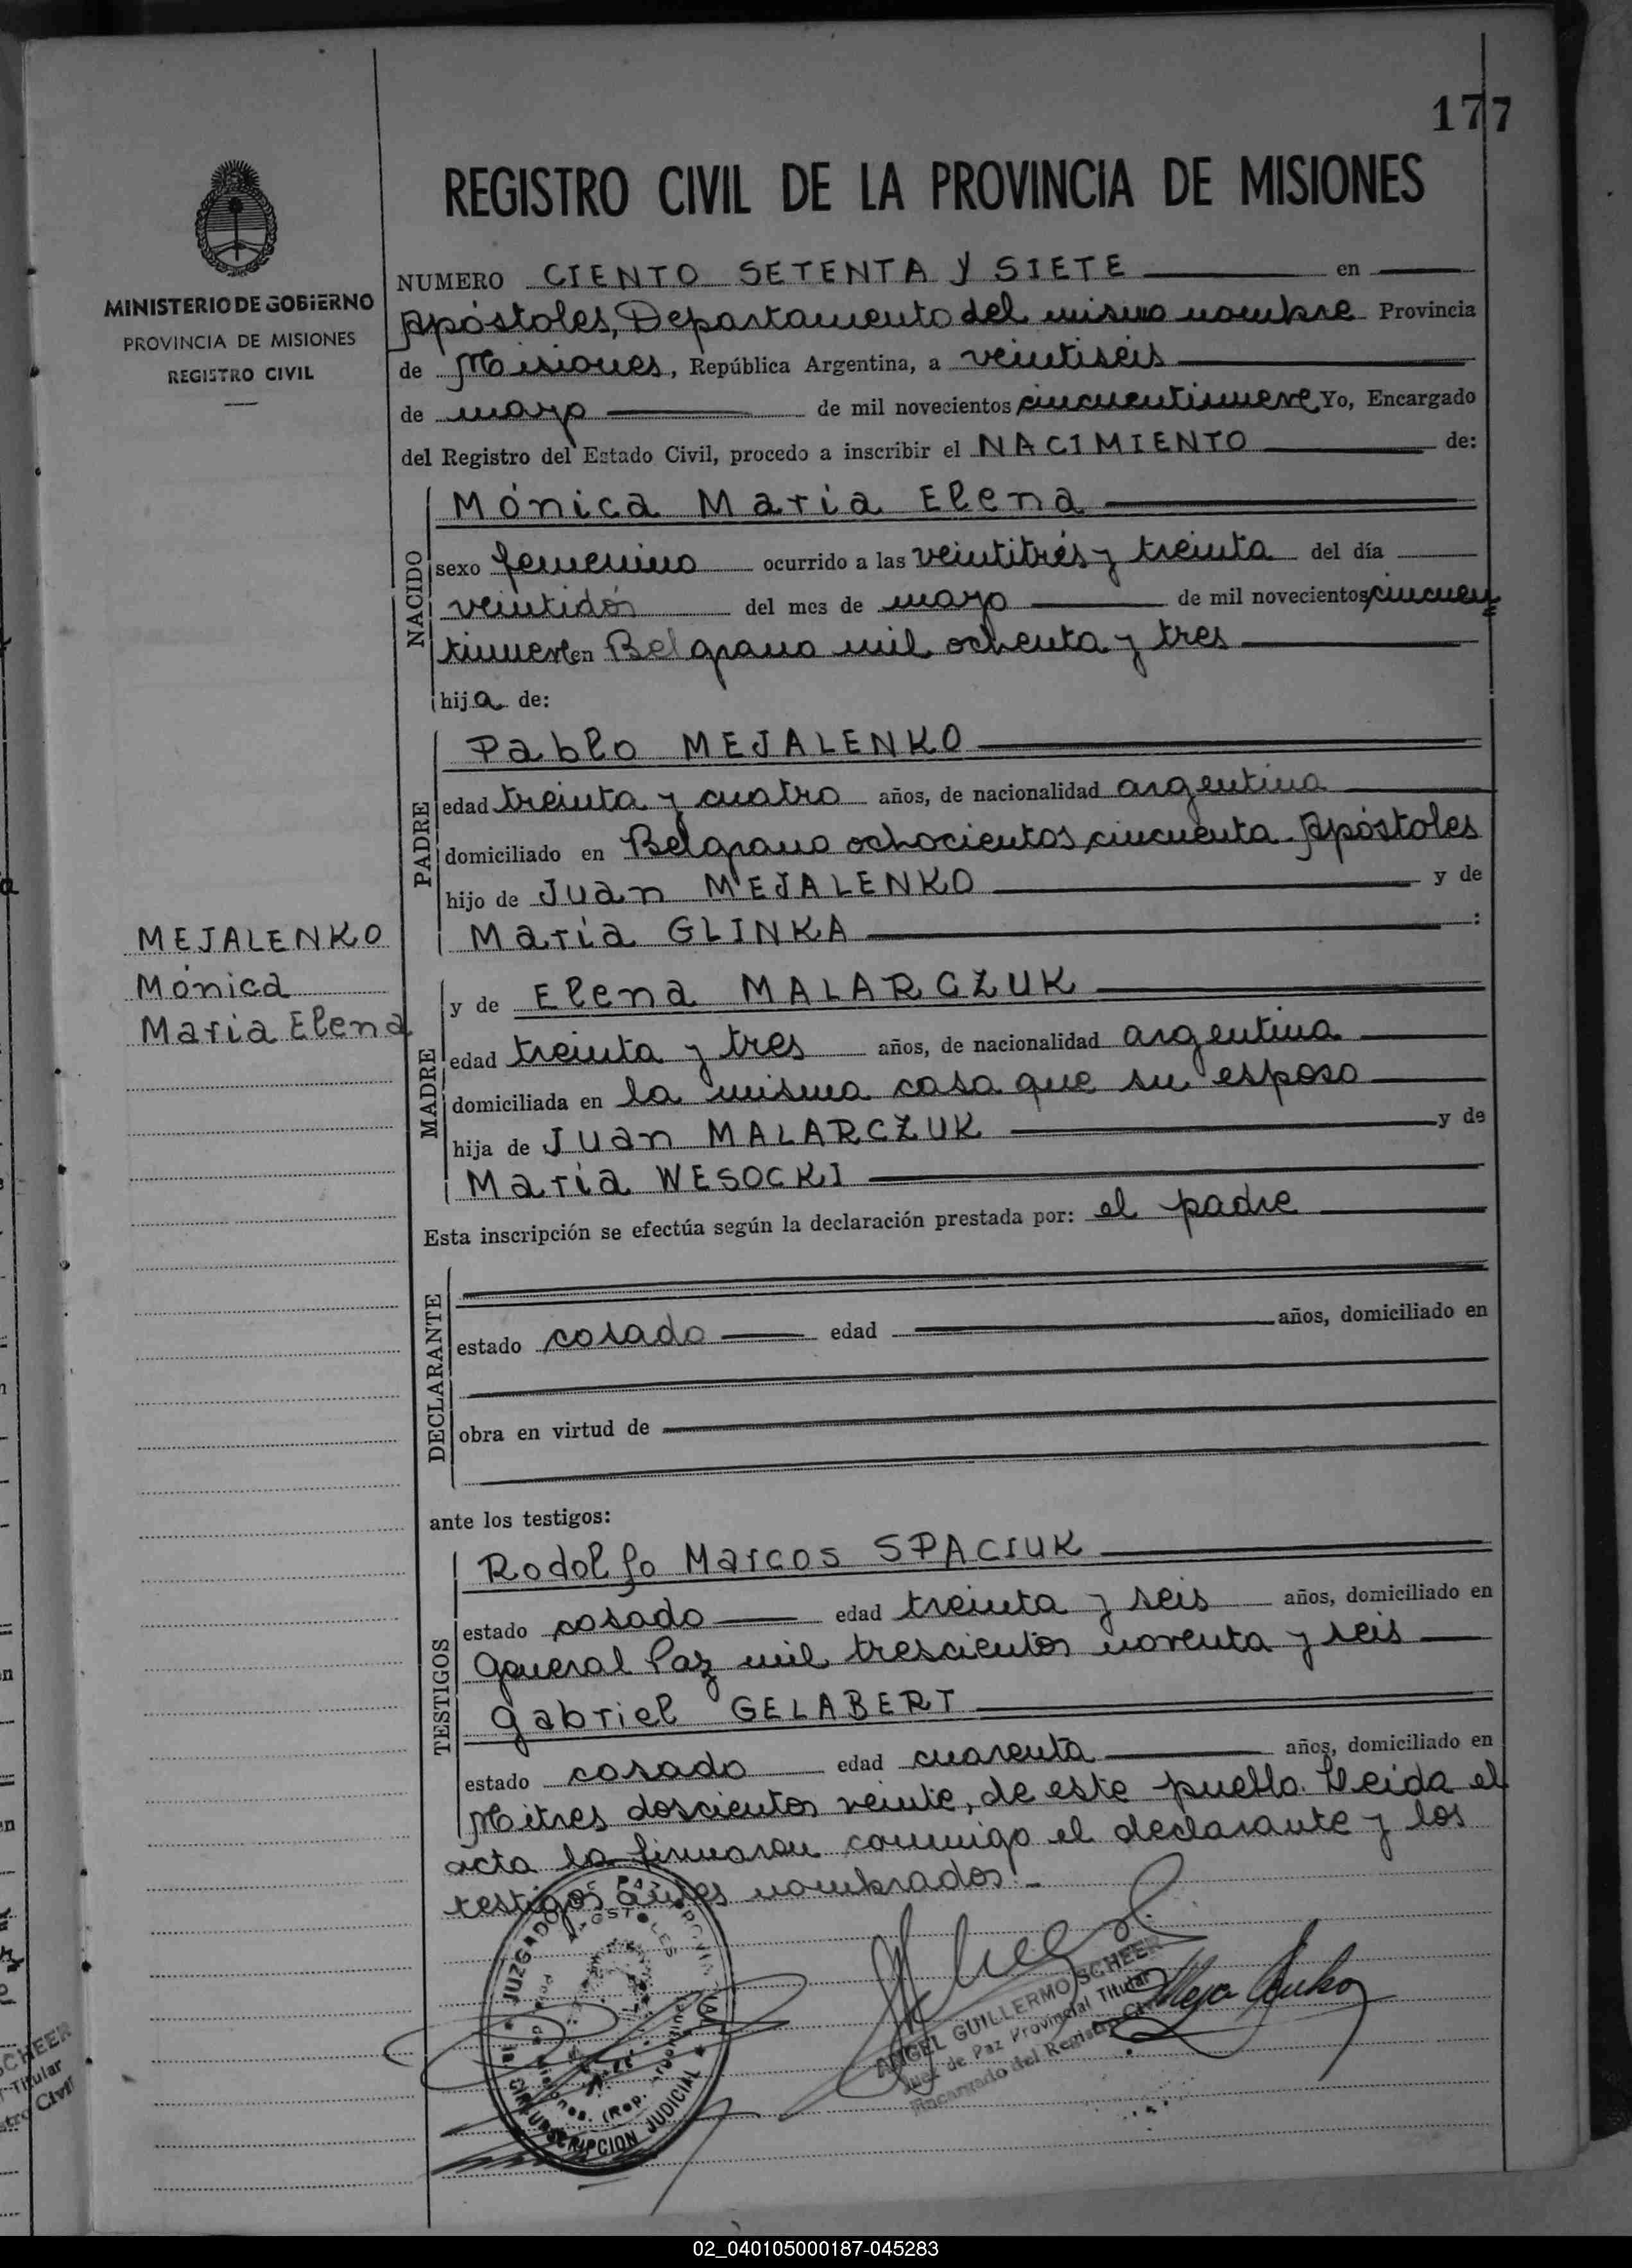 177
REGISTRO CIVIL DE LA PROVINCIA DE MISIONES
MINISTERIO DE GOBIERNO
PROVINCIA DE MISIONES
REGISTRO CIVIL
NUMERO CIENTO SETENTA Y SIETE en
Apóstoles, Departamento del mismo nombre Provincia
de Misiones, República Argentina, a veintiseis
de mayo de mil novecientos cincuentinueve Yo, Encargado
del Registro del Estado Civil, procedo a inscribir el NACIMIENTO de:
NACIDO
Mónica María Elena
sexo femenino ocurrido a las veintitrés y treinta del día
veintidós del mes de mayo de mil novecientos cincuen
tinueve en Belgrano mil ochenta y tres
hija de:
PADRE
Pablo MEJALENKO
edad treinta y cuatro años, de nacionalidad argentina
domiciliado en Belgrano ochocientos cincuenta. Apóstoles
hijo de Juan MEJALENKO y de
María GLINKA :
MEJALENKO
Mónica
María Elena
MADRE
y de Elena MALARCZUK
edad treinta y tres años, de nacionalidad argentina
domiciliada en la misma casa que su esposo
hija de Juan MALARCZUK y de
María WESOCKI
Esta inscripción se efectúa según la declaración prestada por: el padre
DECLARANTE
estado casado edad años, domiciliado en
obra en virtud de
ante los testigos:
TESTIGOS
Rodolfo Marcos SPACIUK
estado casado edad treinta y seis años, domiciliado en
General Paz mil trescientos noventa y seis
Gabriel GELABERT
estado casado edad cuarenta años, domiciliado en
Mitres doscientos veinte, de este pueblo. Leída el
acta la firmaron conmigo el declarante y los
testigos antes nombrados.-
JUZGADO DE PAZ
APOSTOLES
CIRCUNSCRIPCION JUDICIAL
ANGEL GUILLERMO SCHEER
Juez de Paz Provincial Titular
Encargado del Registro Civil
Mejalenko
SCHEER
Titular
Civil
02_040105000187-045283